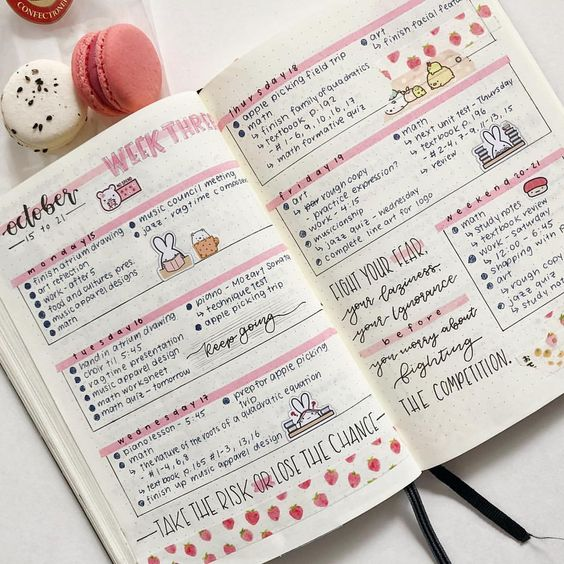 CONFECTIONERY
WEEK THREE
october
15 to 21
monday 15
finish atrium drawing
art reflection
work after 5
food and cultures pres.
music apparel designs
math
music council meeting
jazz, ragtime composers
tuesday 16
hand in atrium drawing
choir til 5:45
ragtime presentation
music apparel design
math worksheet
math quiz - tomorrow
piano - mozart sonata
↳ technique test
apple picking trip
keep going
wednesday 17
piano lesson - 5:45
math
↳ the nature of the roots of a quadratic equation
↳ #1-4, 6, 8
↳ textbook p. 165 #1-3, 13, 16
finish up music apparel design
prep for apple picking
trip
TAKE THE RISK OR LOSE THE CHANCE
thursday 18
apple picking field trip
math
↳ finish family of quadratics
↳ textbook p. 192
↳ #1-6, 9, 10, 16, 17
↳ math formative quiz
art
↳ finish facial features
math
↳ next unit test - thursday
↳ textbook p. 196
↳ #2-4, 9, 11, 13, 15
↳ review
friday 19
art
↳ rough copy
↳ practice expression?
work - 4:15
musicianship
↳ jazz quiz - wednesday
complete line art for logo
weekend 20-21
math
↳ study notes
↳ textbook review
work - saturday
↳ 12:00 - 6:45
shopping with
art
↳ rough copy
↳ jazz quiz
↳ study notes
FIGHT YOUR FEAR,
your laziness,
your ignorance
before
you worry about
fighting
THE COMPETITION.